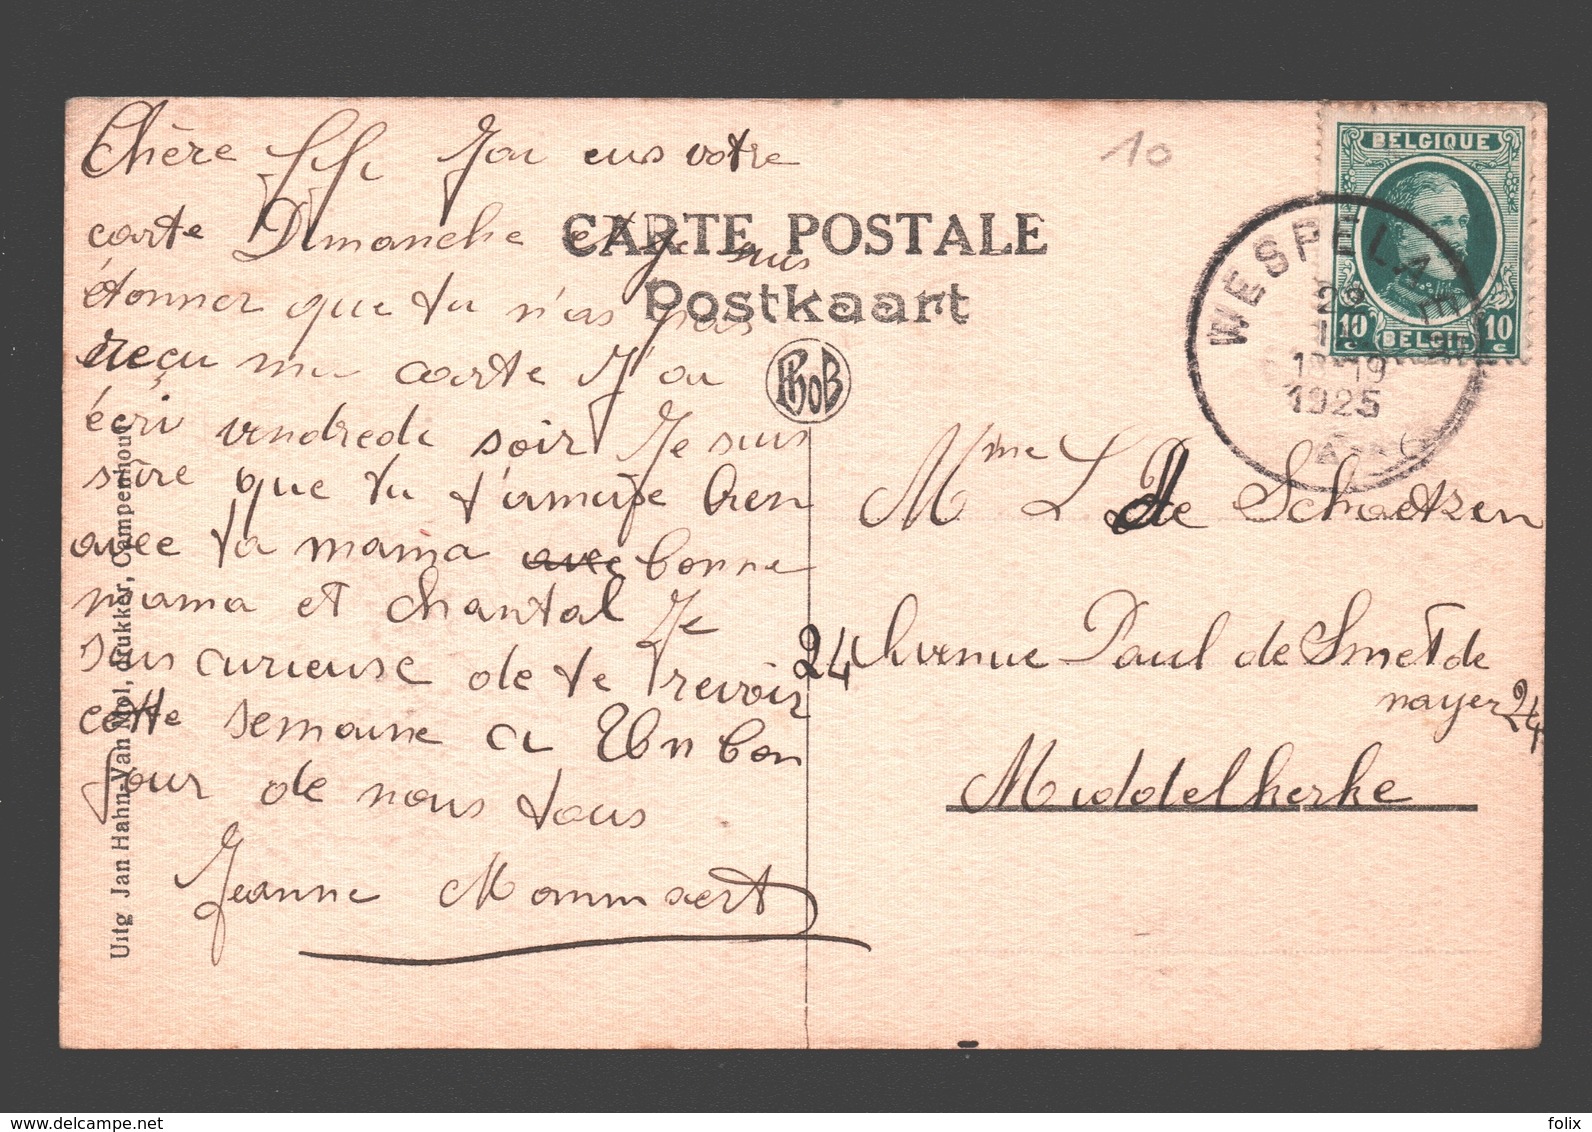 Chère Fifi J'ai eus votre
carte Dimanche et je suis
étonner que tu n'as pas
reçu ma carte J'ai
écri vendredi soir Je suis
sûre que tu t'amuse bien
avec ta mama avec bonne
mama et Chantal Je
suis curieuse de te revoir
cette semaine a Un bon
jour de nous tous
Jeanne Mommaert
CARTE POSTALE
Postkaart
PhoB
Uitg Jan Hahn-Van Mol, drukker, Campenhout
10
BELGIQUE
10 10
BELGIË
WESPELAE
1925
Mme L de Schaetzen
24 Avenue Paul de Smet de
nayer 24
Middelkerke
www.delcampe.net
folix